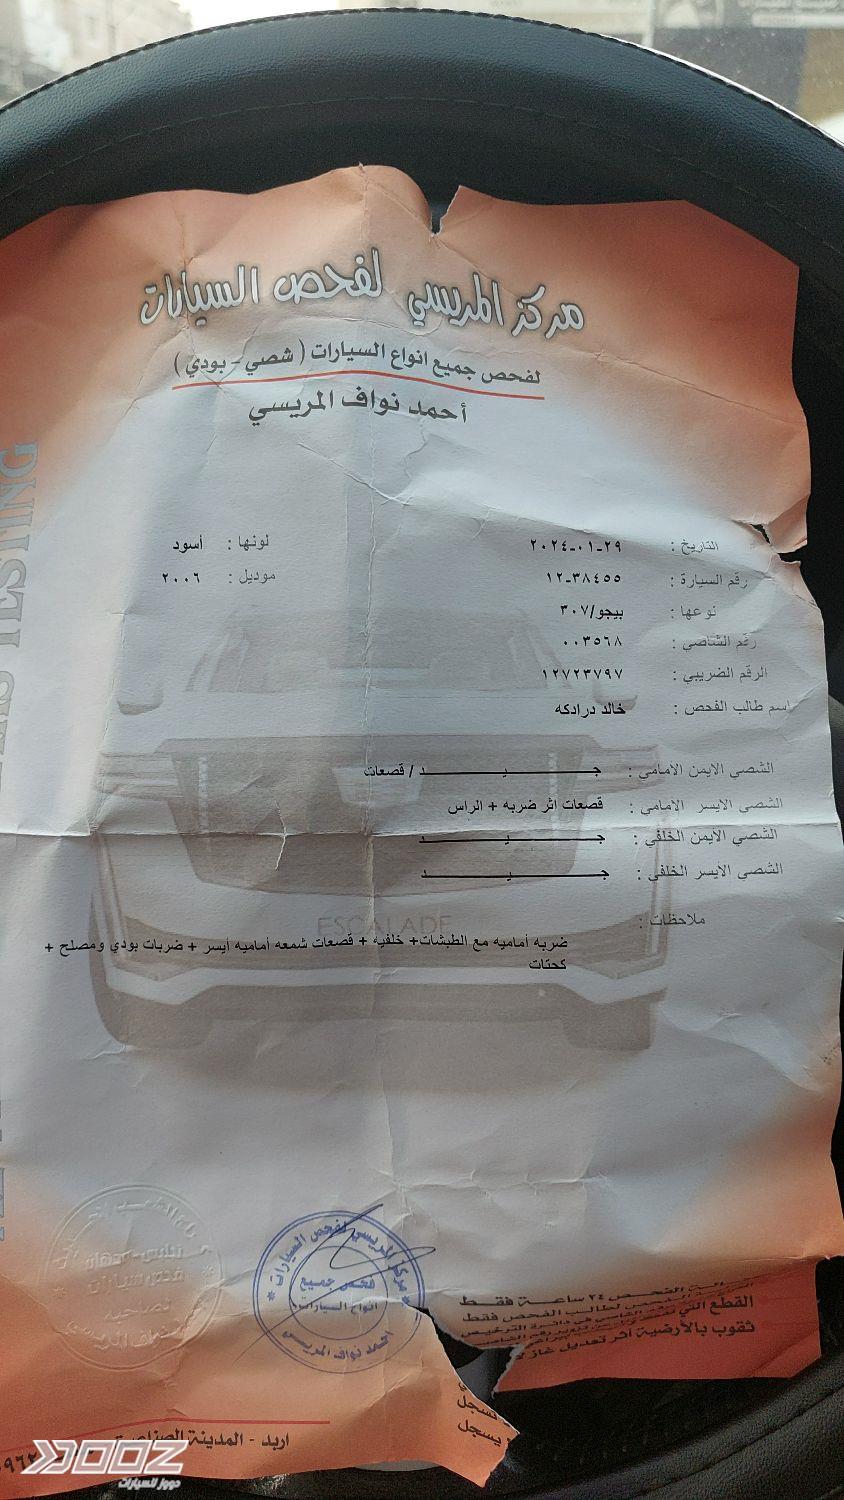 مركز المريسي لفحص السيارات
لفحص جميع انواع السيارات ( شصي - بودي )
أحمد نواف المريسي
التاريخ : ٢٠٢٤-٠١-٢٩ لونها : أسود
رقم السيارة : ١٢-٣٨٤٥٥ موديل : ٢٠٠٦
نوعها : بيجو/٣٠٧
رقم الشاصي : ٠٠٣٥٦٨
الرقم الضريبي : ١٢٧٢٣٧٩٧
اسم طالب الفحص : خالد درادكه
الشصي الايمن الامامي : جـــيـــد / قصعات
الشصي الايسر الامامي : قصعات اثر ضربه + الراس
الشصي الايمن الخلفي : جـــيـــد
الشصي الايسر الخلفي : جـــيـــد
ملاحظات :
ضربه أماميه مع الطبشات+ خلفيه + قصعات شمعه أماميه أيسر + ضربات بودي ومصلح +
كحتات
ESCALADE
TESTING
مركز المريسي لفحص السيارات
فحص جميع
انواع السيارات
احمد نواف المريسي
الفحص ٢٤ ساعة فقط
القطع التي
لطالب الفحص فقط
ثقوب بالأرضية اثر تعديل غاز
يسجل
اربد - المدينة الصناعية
DOOZ
دووز للسيارات